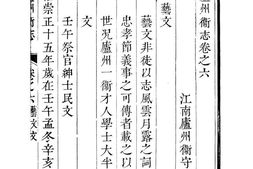 州衛志卷之六
江南廬州衛守
藝文
藝文非徒以志風雲月露之詞
忠孝節義事之可傳者載之以
世况廬州一衛才人學士大半
文
壬午祭官紳士民文
崇正十五年歲在壬午孟冬辛亥
州衛志 卷之六 藝文